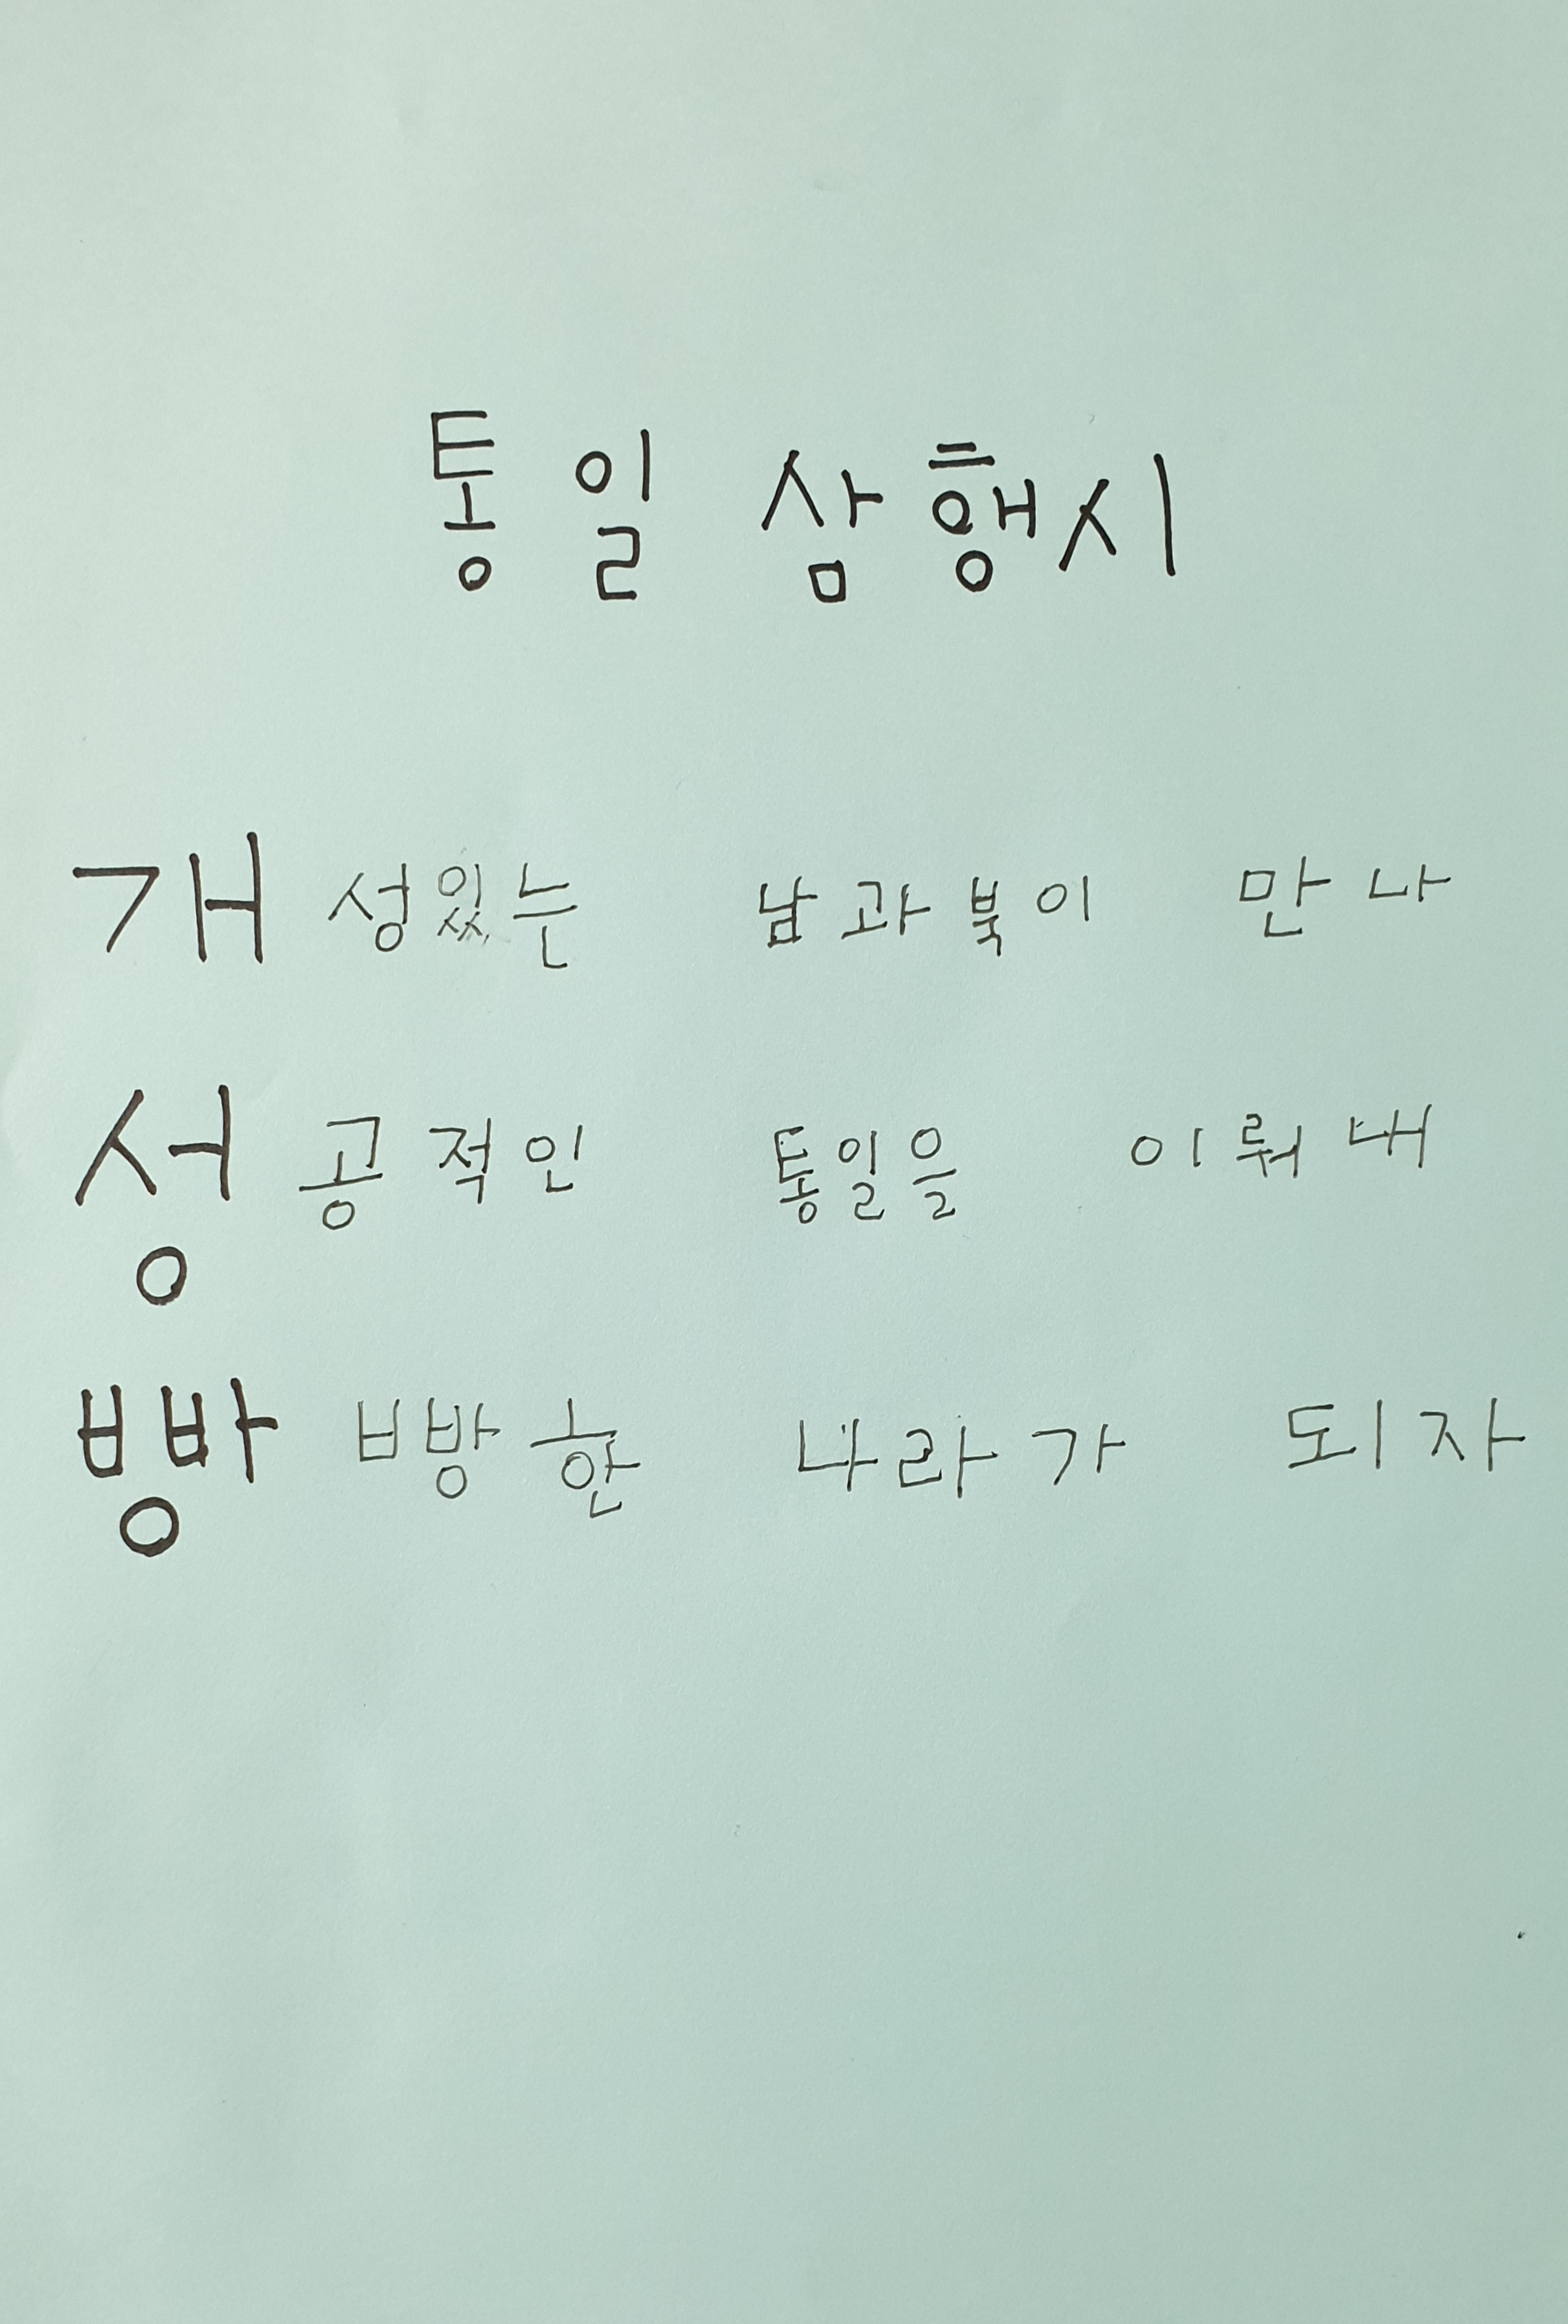 통일 삼행시
개성있는 남과북이 만나
성공적인 통일을 이뤄내
빵빵한 나라가 되자